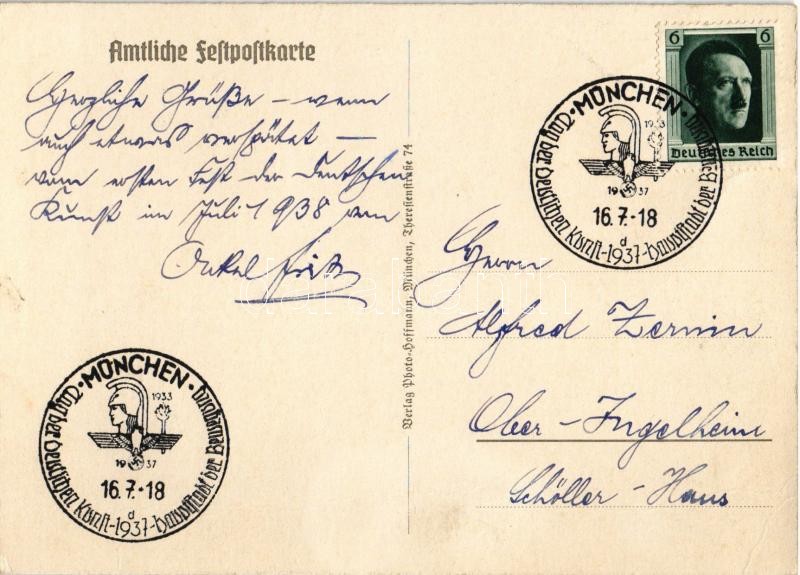 Amtliche Festpostkarte
Herzliche Grüße – wenn
auch etwas verspätet –
vom ersten Fest der Deutschen
Kunst im Juli 1938 von
Onkel Fritz
MÜNCHEN
Tag der Deutschen Kunst - 1937 - Hauptstadt der Bewegung
1933
1937
16.7.-18
d
Verlag Photo-Hoffmann, München, Theresienstraße 74
6 6
Deutsches Reich
MÜNCHEN
Tag der Deutschen Kunst - 1937 - Hauptstadt der Bewegung
1933
1937
16.7.-18
d
Herrn
Alfred Zernin
Ober-Ingelheim
Schöller-Haus